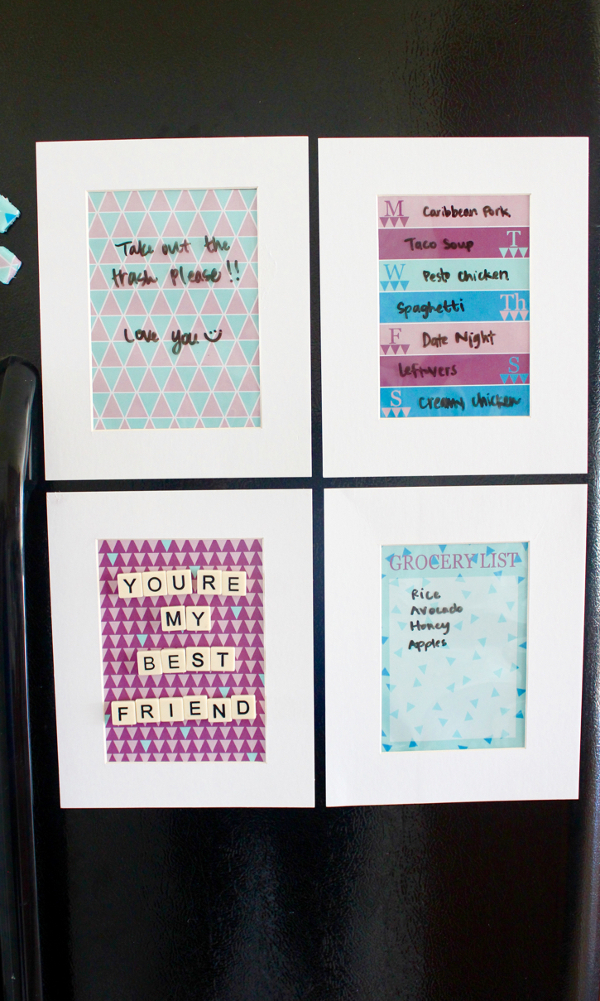 Take out the
trash please!!
Love you
M Caribbean Pork
Taco Soup T
W Pesto Chicken
Spaghetti Th
F Date Night
Leftovers S
S Creamy Chicken
YOU'RE
MY
BEST
FRIEND
GROCERY LIST
Rice
Avocado
Honey
Apples